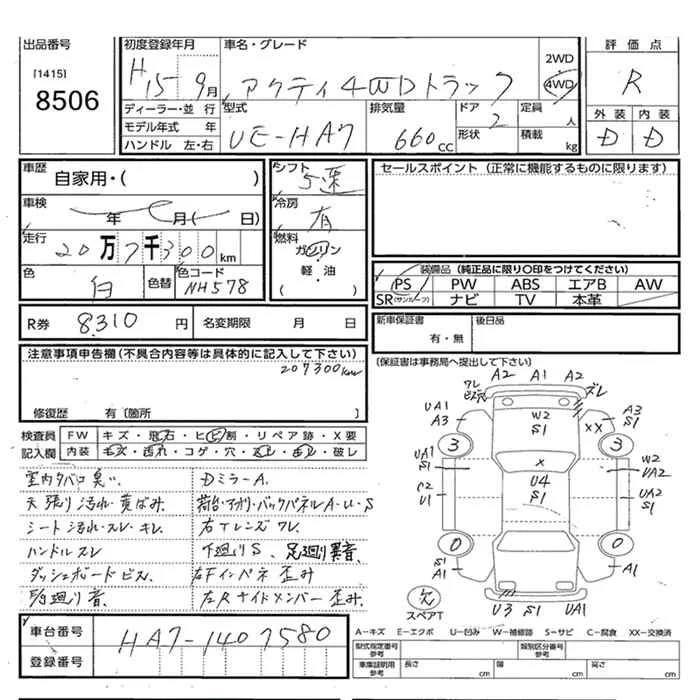 出品番号
[1415]
8506
初度登録年月
H15年9月
車名・グレード
アクティ4WDトラック
2WD
4WD
評価点
R
外装 内装
D D
ディーラー・並 行
モデル年式 年
ハンドル 左・右
型式
UE-HA7
排気量
660cc
ドア
2
形状
定員
人
積載
kg
車歴
自家用・( )
シフト
5速
セールスポイント (正常に機能するものに限ります)
車検
年 月( 日)
冷房
有
走行
20万7千300km
燃料
ガソリン
軽・油
( )
色
白
色替
色コード
NH578
装備品 (純正品に限り〇印をつけてください)
PS PW ABS エアB AW
SR(サンルーフ) ナビ TV 本革
R券 8310円 名変期限 月 日
新車保証書
有・無
後日品
(保証書は事務局へ提出して下さい)
注意事項申告欄 (不具合内容等は具体的に記入して下さい)
207300km
修復歴 有〔箇所 〕
検査員
記入欄
FW キズ・飛石・ヒビ割・リペア跡・X要
内装 キズ・汚れ・コゲ・穴・スレ・破レ
室内タバコ臭い. Dミラー A.
天張り汚れ・黄ばみ. 荷台・アオリ・バックパネル A・U・S
シート汚れ・スレ・キレ. 右Tレンズ ワレ.
ハンドルスレ 下廻りS、足廻り異音.
ダッシュボード ビス. 右Fインパネ歪み
廻り音. 左Rサイドメンバー歪み.
A2 A1 A2
ワレ
ビス穴
ズレ
UA1
A3
W2
S1
XX
A3
S1
3
3
UA1
S1
X
W2
UA2
C2
U1
U4
S1
UA2
S1
0
0
S1
A1
A1
欠
スペアT
U3 S1 UA1
車台番号
HA7-1407580
登録番号
A-キズ E-エクボ U-凹み W-補修跡 S-サビ C-腐食 XX-交換済
型式指定番号
参考
類別区分番号
参考
車庫証明用
参考
長さ cm
幅 cm
高さ cm